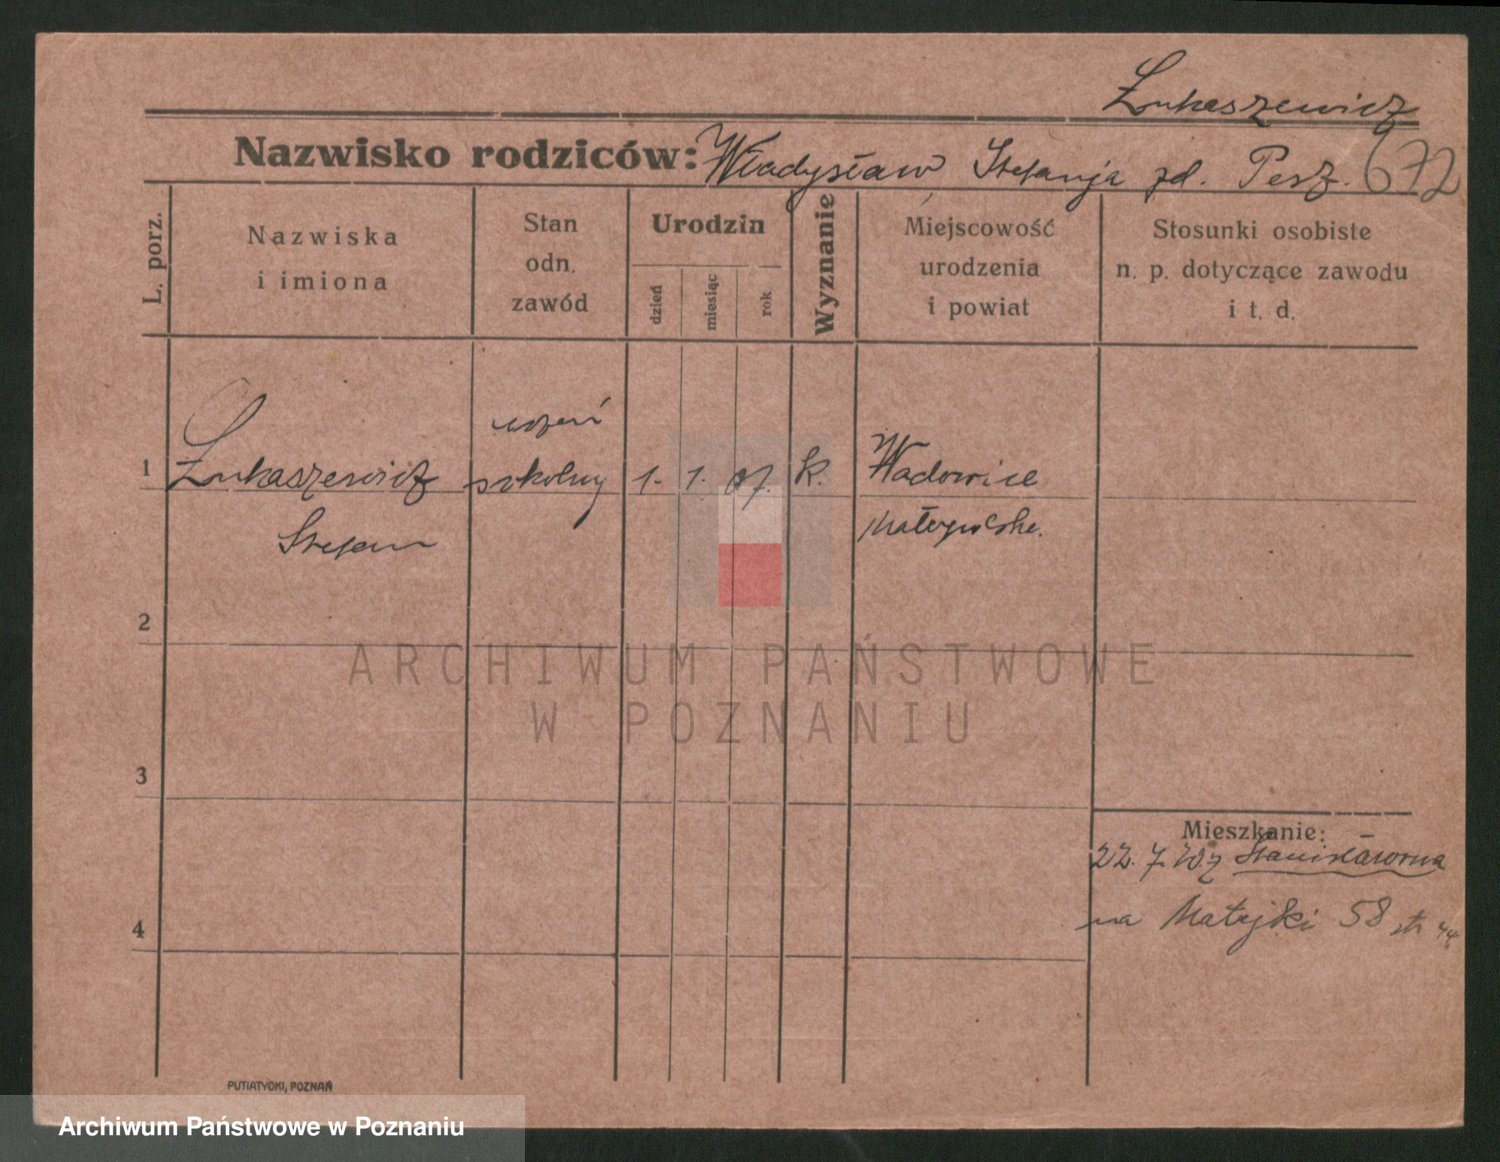 Łukaszewicz
Nazwisko rodziców: Władysław Stefanja zd. Pesz. 672
L. porz.
Nazwiska
i imiona
Stan
odn.
zawód
Urodzin
dzień
miesiąc
rok
Wyznanie
Miejscowość
urodzenia
i powiat
Stosunki osobiste
n. p. dotyczące zawodu
i t. d.
uczeń
1 Łukaszewicz szkolny 1. 1. 07. k. Wadowice
Stefan Małopolska.
2
ARCHIWUM PAŃSTWOWE
W POZNANIU
3
Mieszkanie:
22. 7. Stanisławowa
4 na Matejki 58
PUTIATYCKI, POZNAŃ
Archiwum Państwowe w Poznaniu